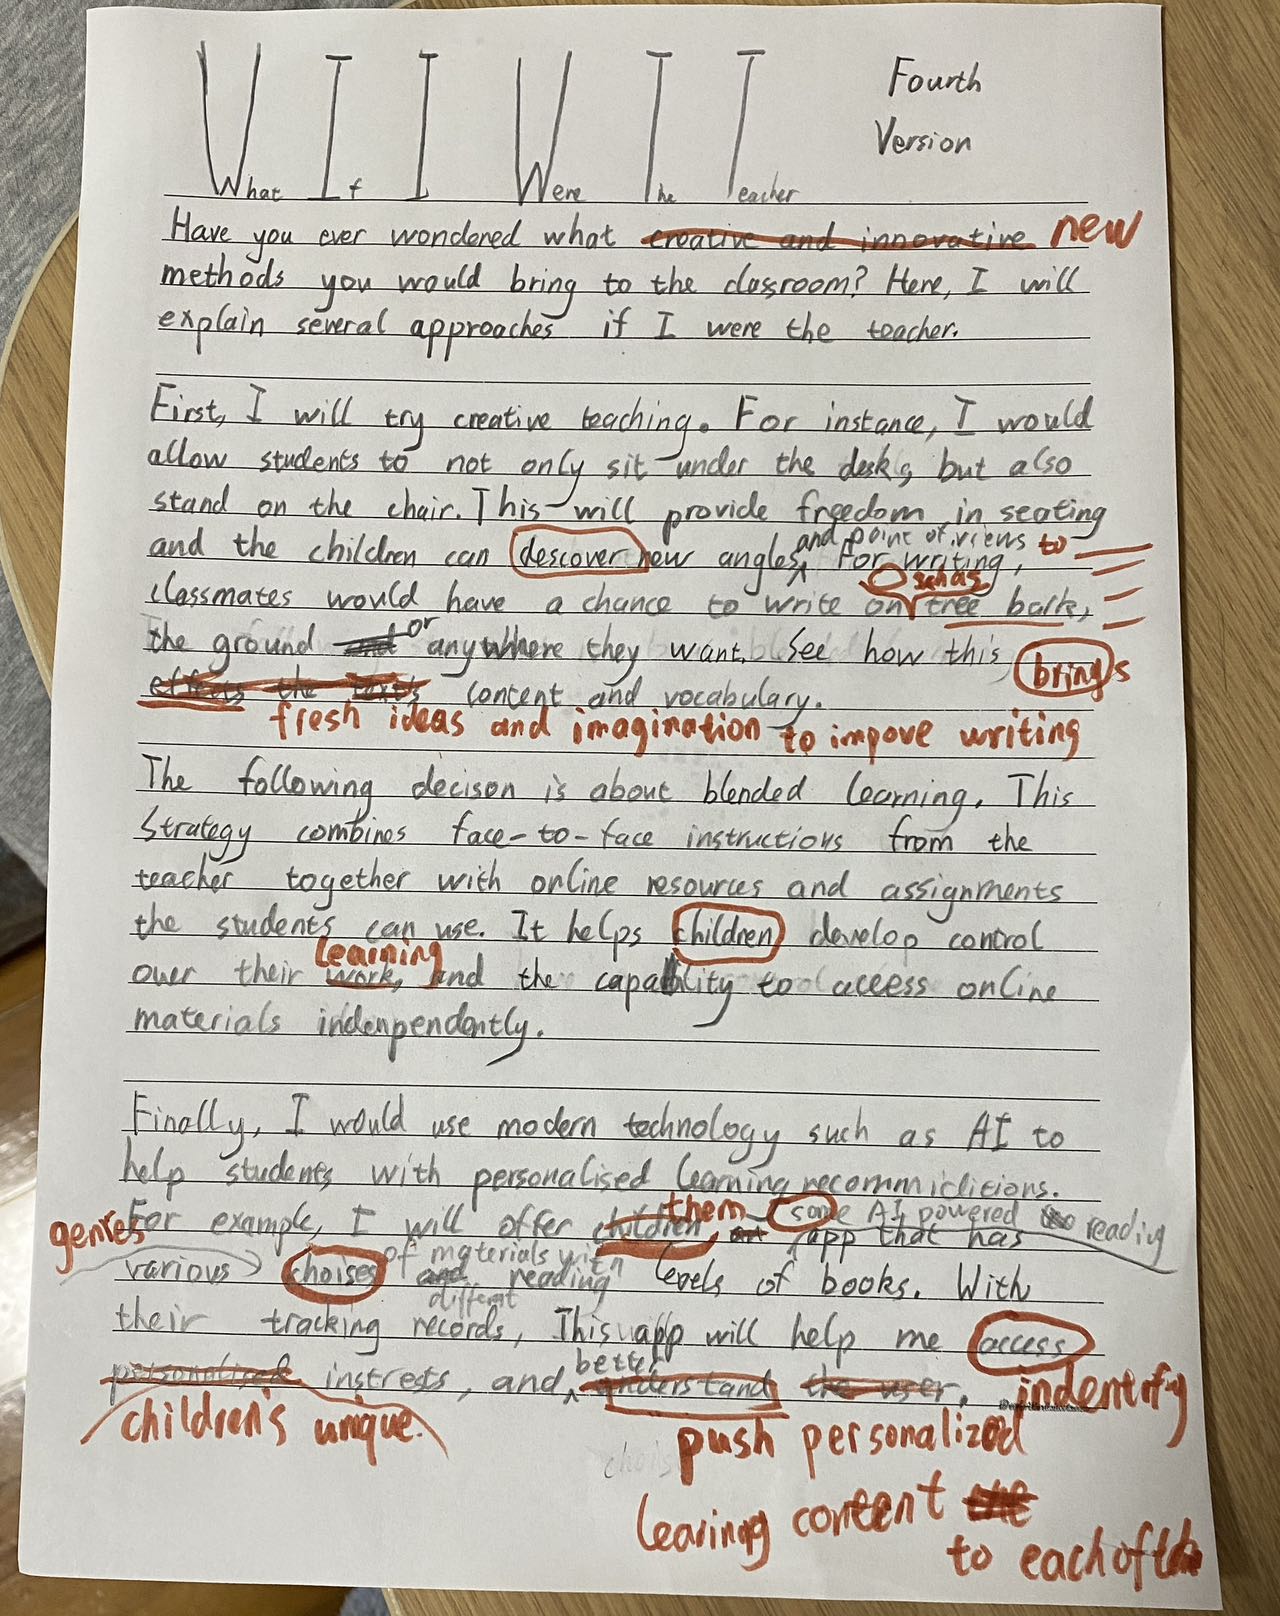 What If I Were The Teacher
Fourth
Version
Have you ever wondered what creative and innovative new
methods you would bring to the classroom? Here, I will
explain several approaches if I were the teacher.
First, I will try creative teaching. For instance, I would
allow students to not only sit under the desks, but also
stand on the chair. This will provide freedom in seating
and the children can descover new angles and point of views to
For writing,
schas
classmates would have a chance to write on tree bark,
the ground and or anywhere they want. See how this brings
effects the texts content and vocabulary.
fresh ideas and imagination to impove writing
The following decison is about blended learning. This
strategy combines face-to-face instructions from the
teacher together with online resources and assignments
the students can use. It helps children develop control
learning
over their work, and the capability to access online
materials indenpendently.
Finally, I would use modern technology such as AI to
help students with personalised learning
genres
For example, I will offer children them some AI powered reading
app that has
various choises of materials with
and different reading levels of books. With
their tracking records, This app will help me access
personalized instrests, and better understand the user. indentify
children's unique.
push personalized
choise
learing content the
to each of